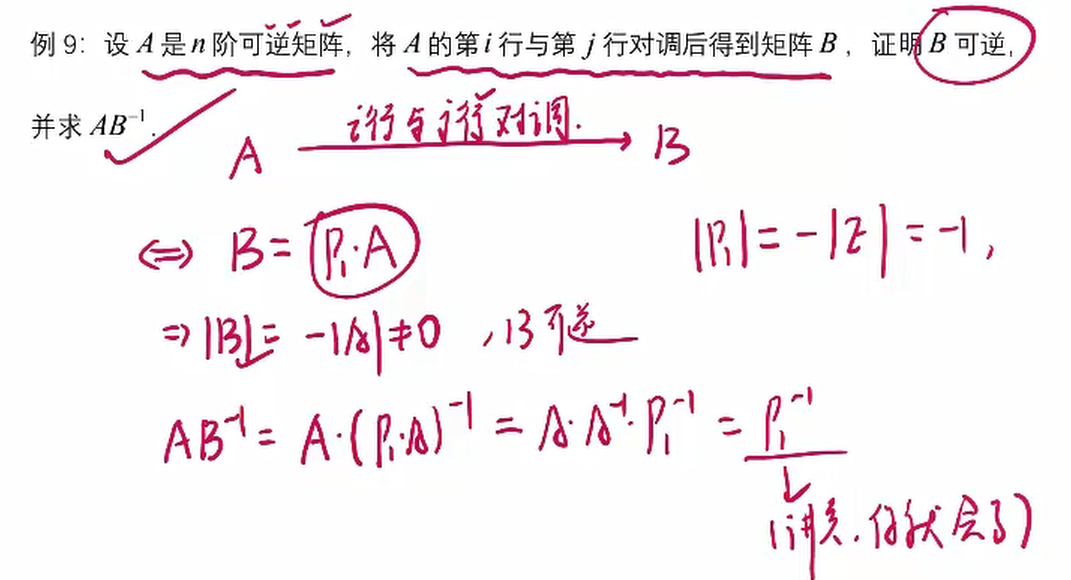 例 9：设 A 是 n 阶可逆矩阵，将 A 的第 i 行与第 j 行对调后得到矩阵 B，证明 B 可逆，
并求 AB⁻¹.
A i行与j行对调. B
⇔ B = P₁·A |P₁| = -|E| = -1,
⇒ |B| = -|A| ≠ 0 , B可逆
AB⁻¹ = A·(P₁·A)⁻¹ = A·A⁻¹·P₁⁻¹ = P₁⁻¹